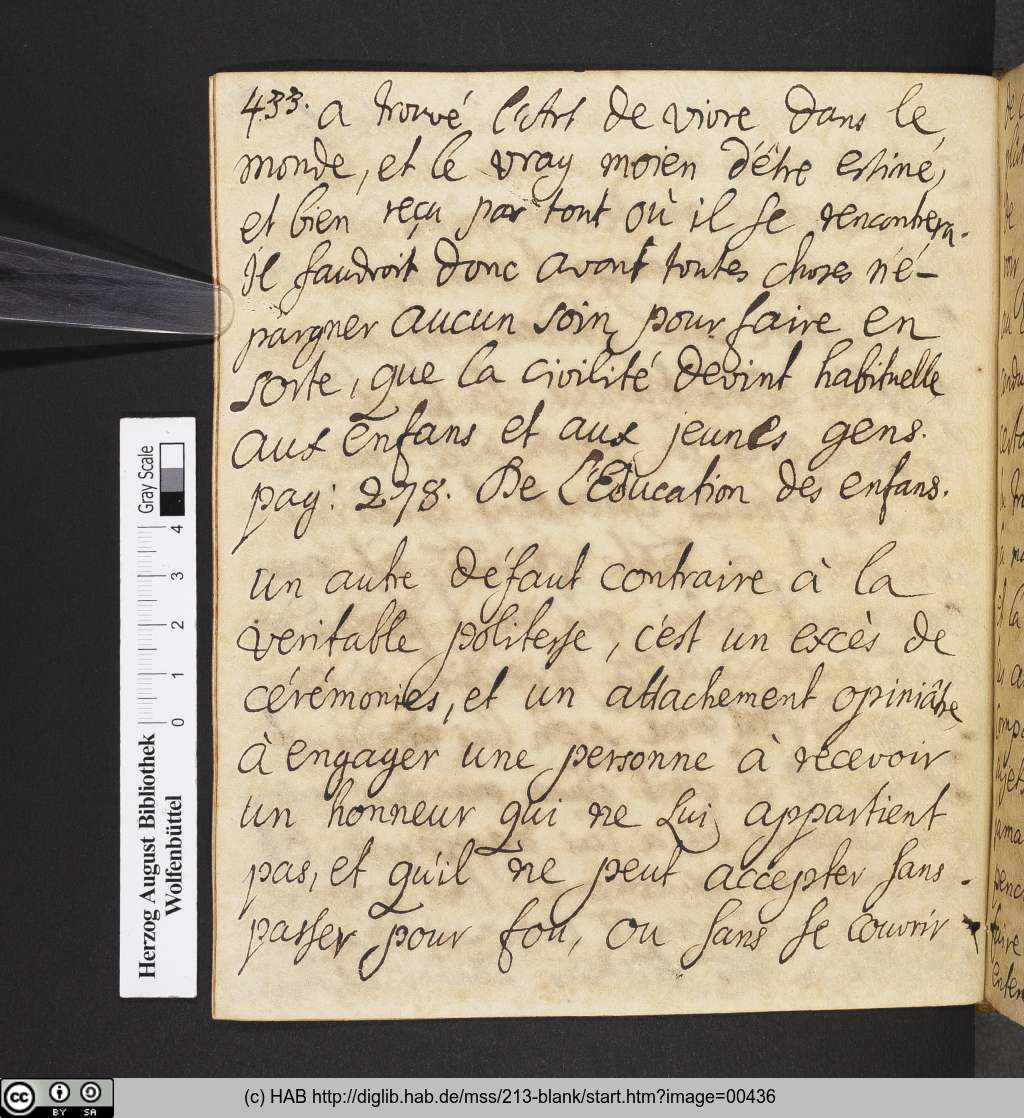 433. a trouvé l'Art de vivre dans le
monde, et le vray moien d'être estimé,
et bien reçu par tout où il se rencontrera.
Il faudroit donc avant toutes choses n'é-
pargner aucun soin, pour faire en
sorte, que la civilité devint habituelle
aux enfans et aux jeunes gens.
pag: 278. De l'Education des enfans.
un autre défaut contraire à la
veritable politesse, c'est un excès de
cérémonies, et un attachement opiniâtre
à engager une personne à recevoir
un honneur qui ne Lui appartient
pas, et qu'il ne peut accepter sans
passer pour fou, ou sans se couvrir
Herzog August Bibliothek
Wolfenbüttel
0 1 2 3 4
Gray Scale
cc BY SA
(c) HAB http://diglib.hab.de/mss/213-blank/start.htm?image=00436